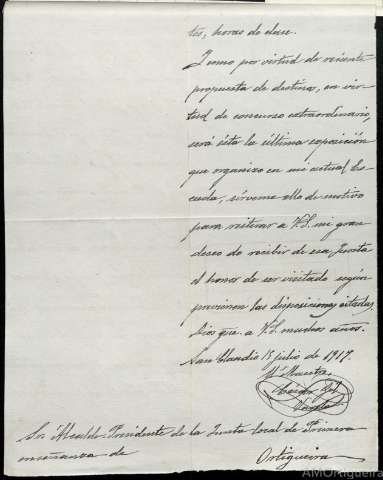 tes, horas de clase.
Y como por virtud de reciente
propuesta de destinos, en vir-
tud de concurso extraordinario,
será ésta la última exposición
que organizo en mi actual Es-
cuela, sírveme ello de motivo
para reiterar a V.S. mi gran
deseo de recibir de esa Junta
el honor de ser visitado según
previenen las disposiciones citadas.
Dios gue. a V.S. muchos años.
San Claudio 15 julio de 1917.
Maestro,
Sr. Alcalde-Presidente de la Junta local de Primera
enseñanza de
Ortigueira
AMOrtigueira